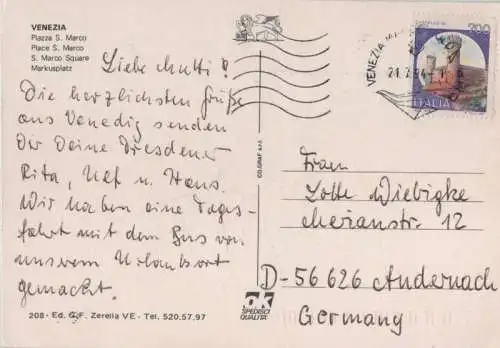 VENEZIA
Piazza S. Marco
Place S. Marco
S. Marco Square
Markusplatz
Liebe Mutti!
Die herzlichsten Grüße
aus Venedig senden
Dir Deine Dresdener
Rita, Ulf u. Hans.
Wir haben eine Tages-
fahrt mit dem Bus von
unserem Urlaubsort
gemacht.
208 - Ed. G.F. Zerella VE - Tel. 520.57.97
COLGRAF s.r.l.
ok
SPEDISCI
QUALITÀ
VENEZIA
21.7.94
200
ITALIA
Frau
Lotte Wiebigke
Merianstr. 12
D-56626 Andernach
Germany